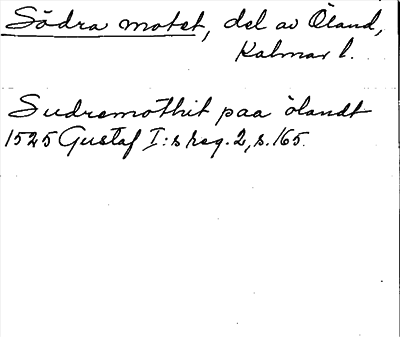 Södra motet, del av Öland,
Kalmar l.
Sudremothit paa ölandt
1525 Gustaf I:s reg. 2, s. 165.